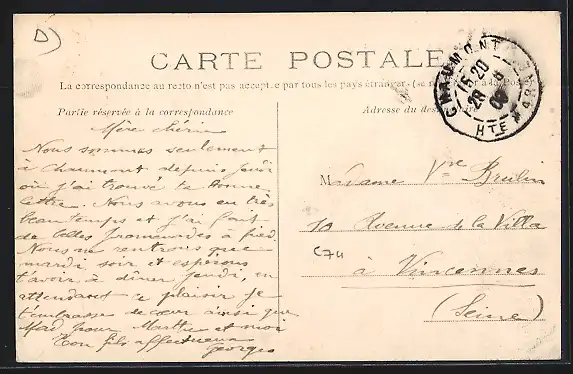 D)
CARTE POSTALE
La correspondance au recto n'est pas acceptée par tous les pays étrangers (se renseigner à la Poste)
Partie réservée à la correspondance
Adresse du destinataire
CHAUMONT
15 20
28 - 8
HTE MARNE
Mère chérie
Nous sommes seulement
à Chaumont depuis jeudi
où j'ai trouvé ta bonne
lettre. Nous avons eu très
beau temps et j'ai fait
de belles promenades à pied.
Nous ne rentrons que
mardi soir et espérons
t'avoir à dîner jeudi, en
attendant ce plaisir je
t'embrasse de cœur ainsi que
Mad pour Marthe et moi
Ton fils affectueux
Georges
Madame Vve Brulin
10 Avenue de la Villa
C74
à Vincennes
(Seine)